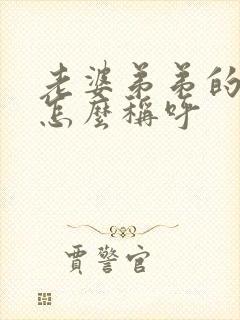 老婆弟弟的
怎麼稱呼
賈警官